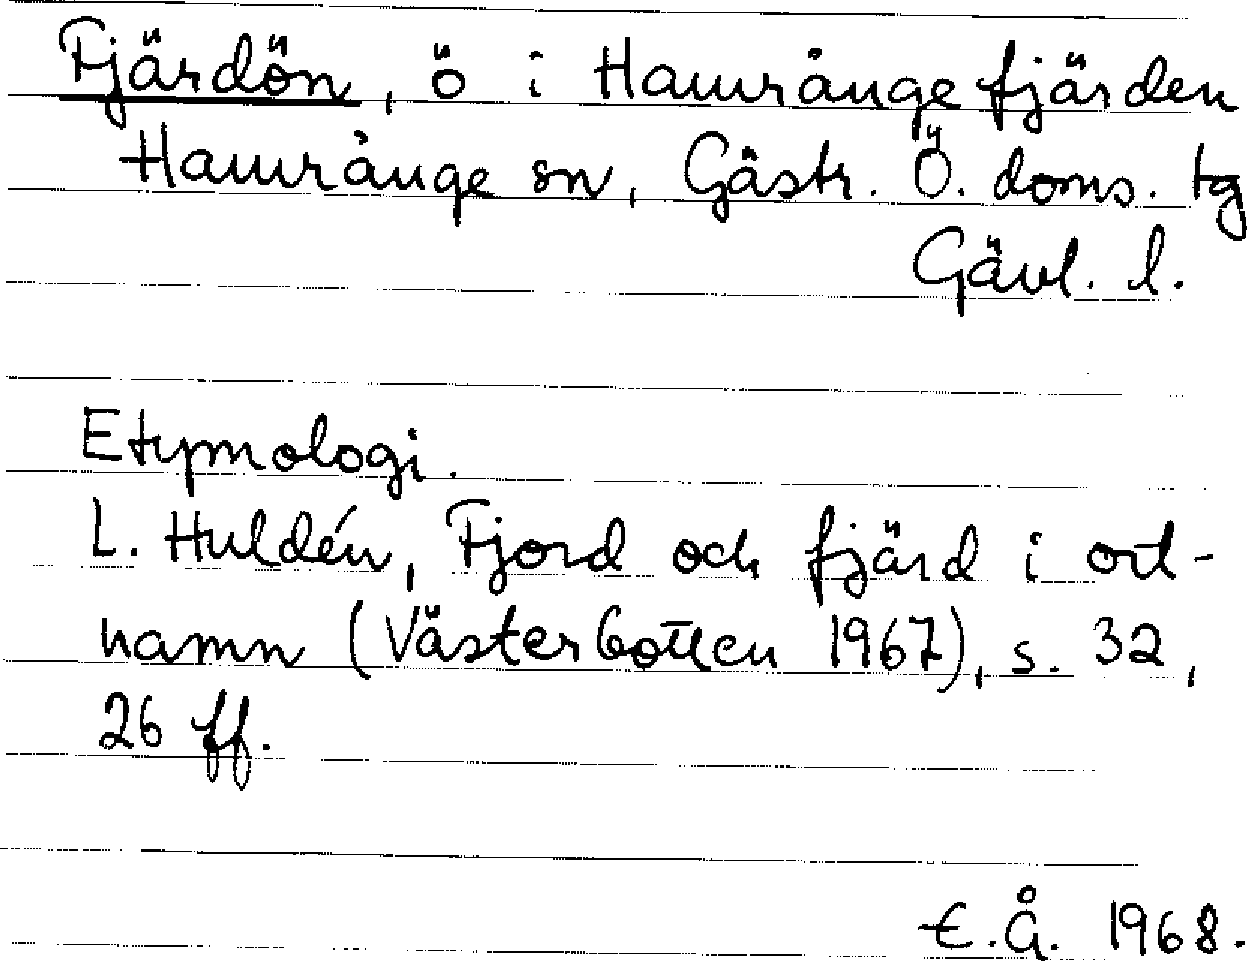 Fjärdön, ö i Hamrångefjärden
Hamrånge sn, Gästr. Ö. doms. tg
Gävl. l.
Etymologi.
L. Huldén, Fjord och fjärd i ort-
namn (Västerbotten 1967), s. 32,
26 ff.
E.Å. 1968.